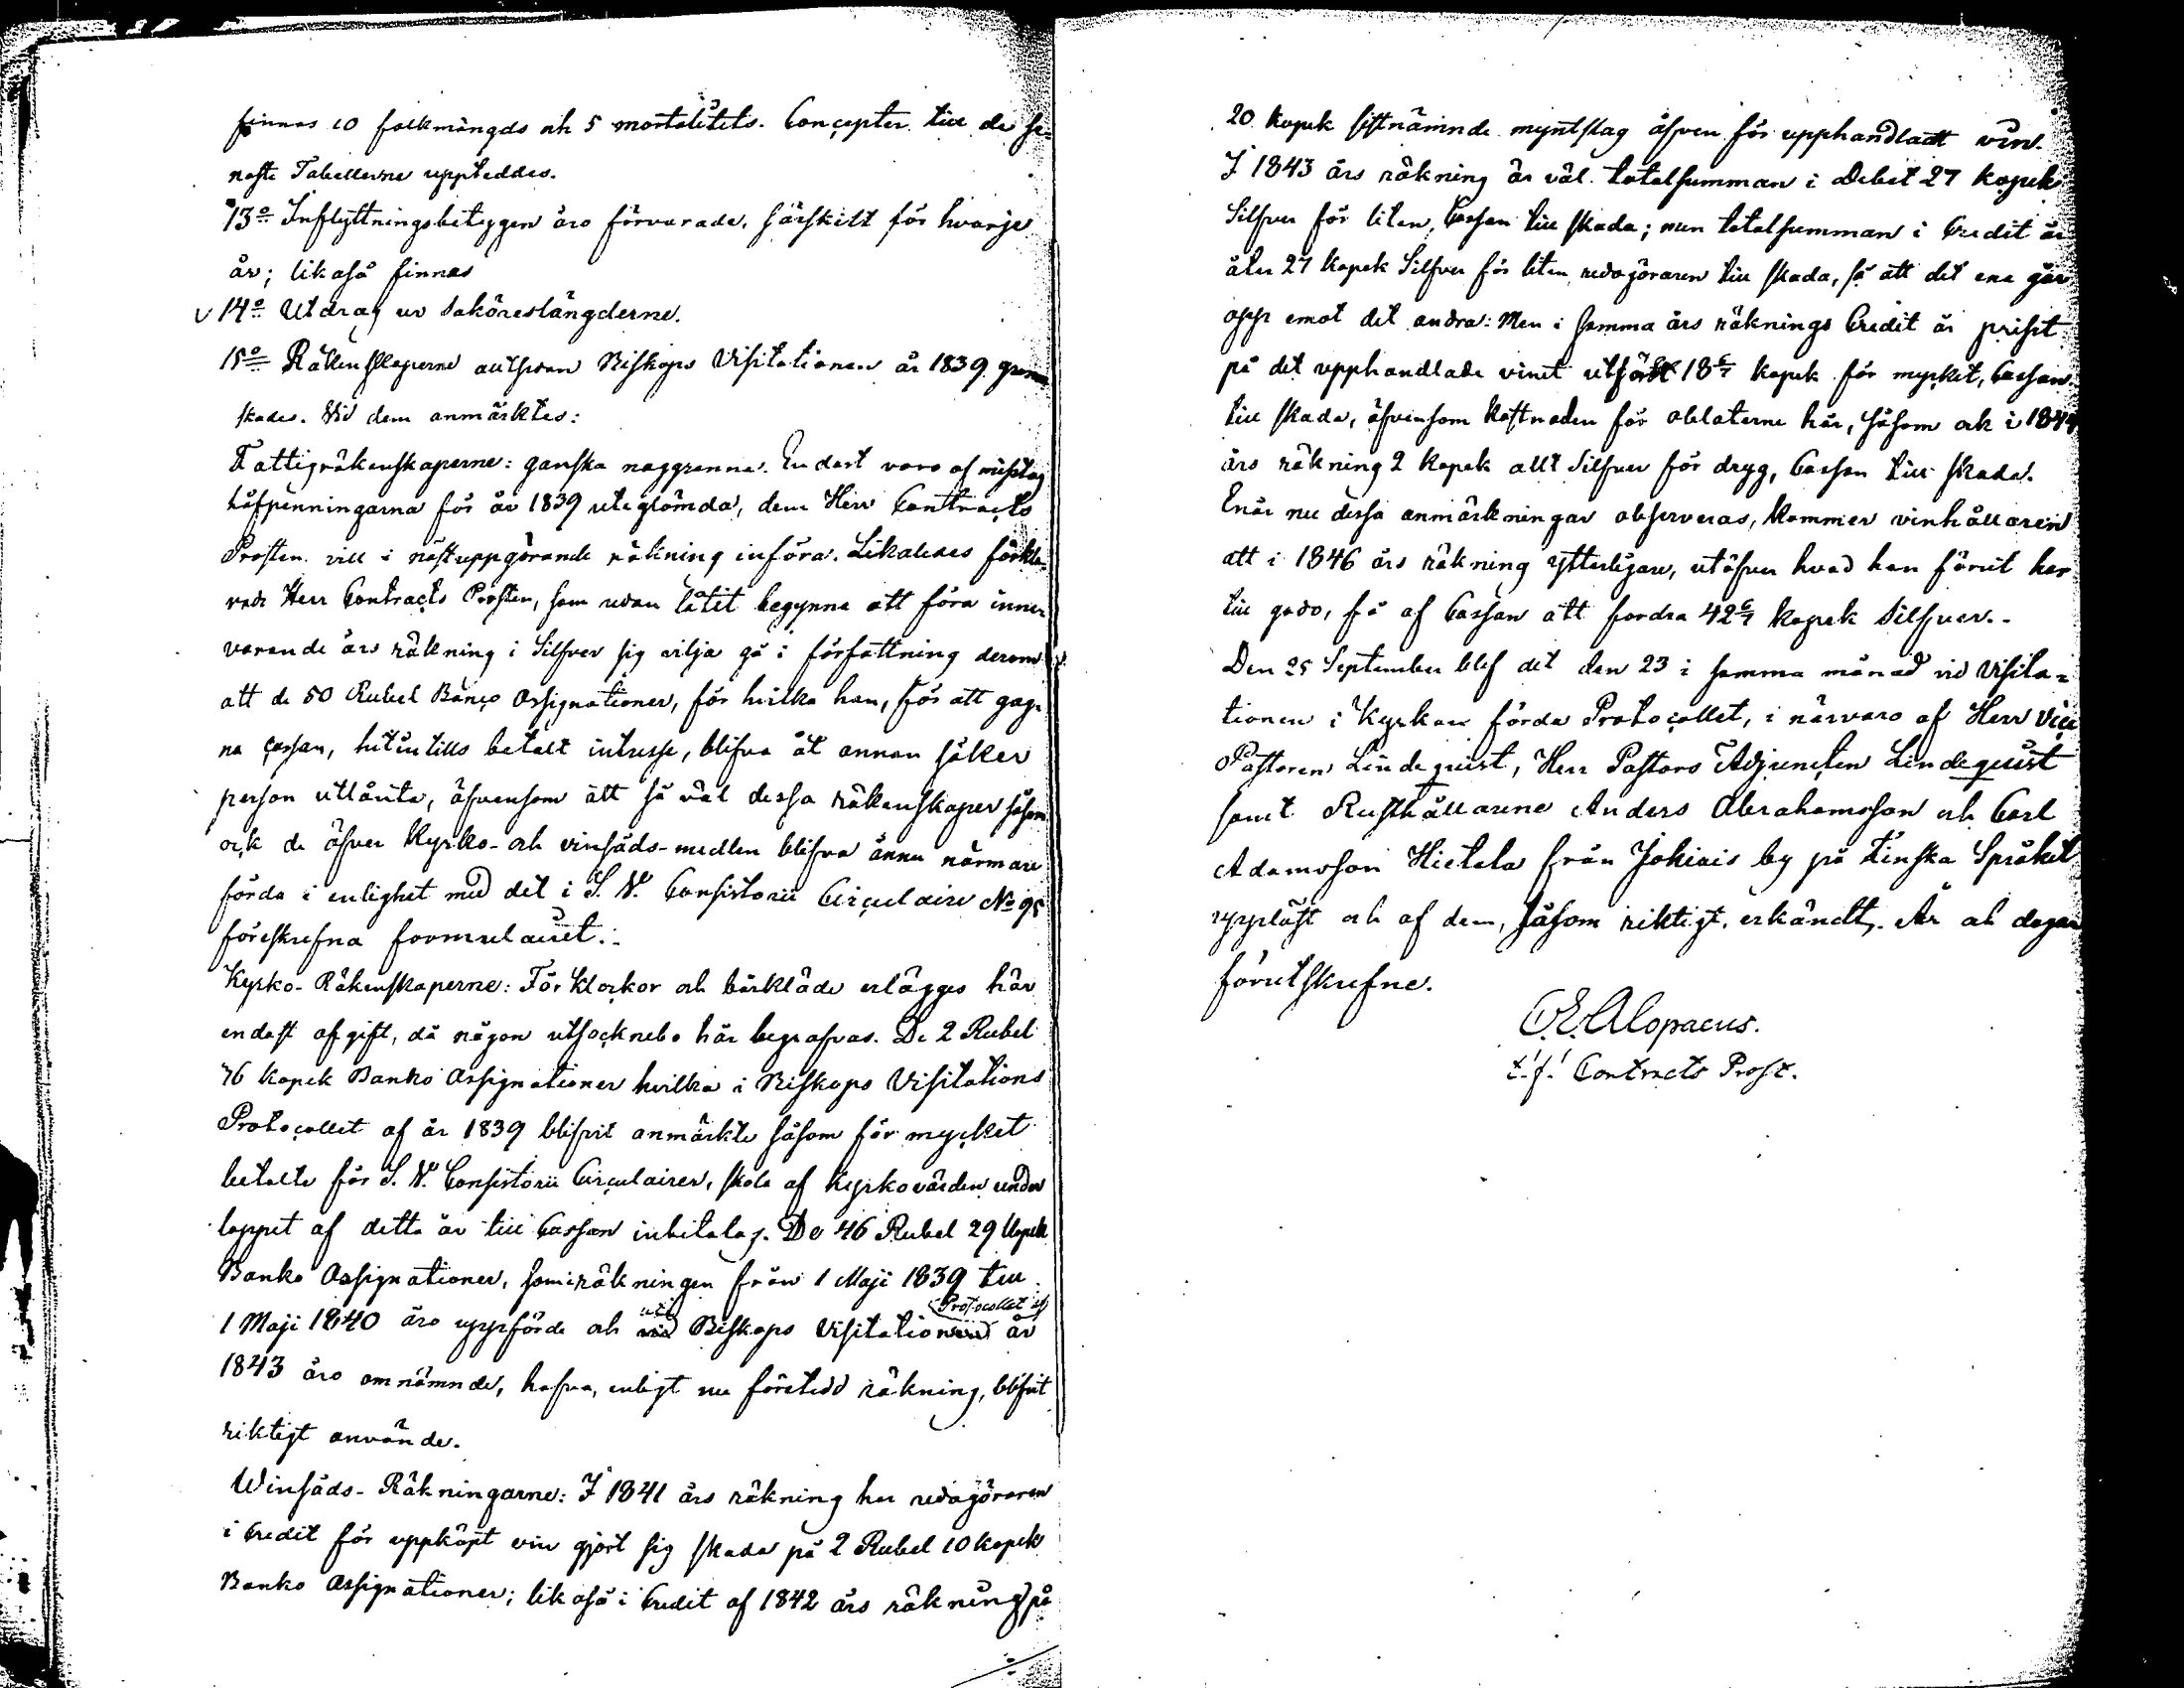 finnas 10 folkmängds och 5 mortalitets. Concepter till de se-
naste Tabellerne uppteddes.
13º Inflyttningsbetygen äro förvarade, särskilt för hvarje
år; likaså finnas
14º Utdrag ur Saköreslängderne.
15º Räkenskaperne allt sedan Biskops Visitationen år 1839 gran-
skades. Vid dem anmärktes:
Fattigräkenskaperne: ganska noggranna. Endast voro af misstag
håfpenningarna för år 1839 uteglömda, dem Herr Contracts
Prosten vill i nästuppgörande räkning införa. Likaledes förkla-
rade Herr Contracts Prosten, som redan låtit begynna att föra inne-
varande års räkning i Silfver sig vilja gå i författning derom
att de 50 Rubel Banco Assignationer, för hvilka han, för att gag-
na Cassan, hitintills betalt intresse, blifva åt annan säker
person utlånta, äfvensom att så väl dessa räkenskaper såsom
ock de öfver Kyrko- och vinsäds-medlen blifva ännu närmare
förda i enlighet med det i S. V. Consistorii Circulaire Nº 95
föreskrefna formulairet.
Kyrko-Räkenskaperne: För klockor och bårkläde erlägges här
endast afgift, då någon utsocknebo här begrafvas. De 2 Rubel
76 Kopek Banko Assignationer hvilka i Biskops Visitations
Protocollet af år 1839 blifvit anmärkte såsom för mycket
betalte för S. V. Consistorii Circulairer, skola af Kyrkovärden under
loppet af detta år till Cassan inbetalas. De 46 Rubel 29 Kopek
Banko Assignationer, som i räkningen från 1 Maji 1839 till
1 Maji 1840 äro uppförde och uti Biskops Visitations Protocollet af år
1843 äro omnämnde, hafva, enligt nu företedd räkning, blifvit
riktigt använde.
Winsäds-Räkningarne: I 1841 års räkning har redogöraren
i Credit för uppköpt vin gjort sig skada på 2 Rubel 10 kopek
Banko Assignationer; likaså i Credit af 1842 års räkning på
20 kopek sistnämnde myntslag äfven för upphandladt vin.
I 1843 års räkning är väl totalsumman i Debet 27 kopek
Silfver för liten, Cassan till skada; men totalsumman i Credit är
åter 27 kopek Silfver för liten redogöraren till skada, så att det ena går
opp emot det andra: Men i samma års räknings Credit är priset
på det upphandlade vinet utfördt 18 6/7 kopek för mycket, Cassan
till skada, äfvensom kostnaden för oblaterne här, såsom ock i 1844
års räkning 2 kopek allt Silfver för dryg, Cassan till skada.
Enär nu dessa anmärkningar observeras, kommer vinhållaren
att i 1846 års räkning ytterligare, utöfver hvad han förut har
till godo, få af Cassan att fordra 42 6/7 kopek Silfver.-
Den 25 September blef det den 23 i samma månad vid Visita-
tionen i Kyrkan förda Protocollet, i närvaro af Herr Vice
Pastoren Lindequist, Herr Pastors Adjuncten Lindequist
samt Rusthållarene Anders Abrahamsson och Carl
Adamsson Hietala från Jokiois by på Finska Språket
uppläst och af dem, såsom riktigt, erkändt. År och dagar
förutskrefne.
C. E. Alopaeus.
t. f. Contracts Prost.